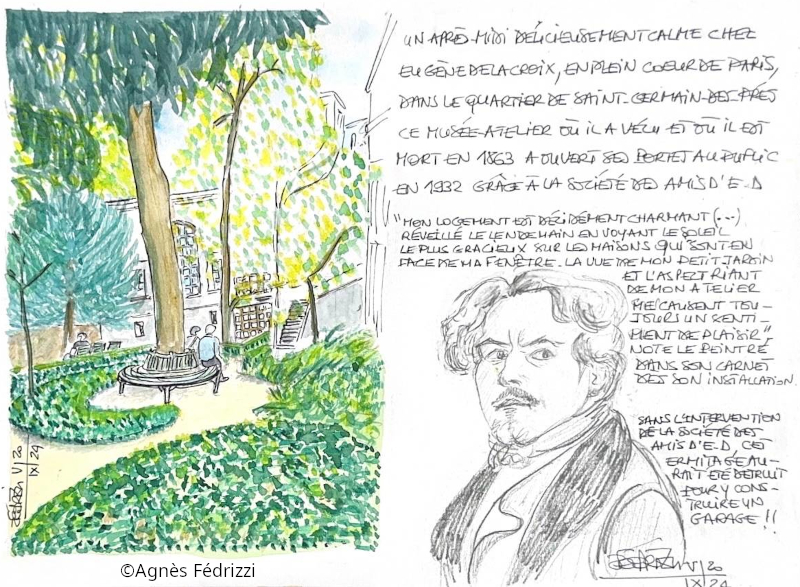 UN APRÈS-MIDI DÉLICIEUSEMENT CALME CHEZ
EUGÈNE DELACROIX, EN PLEIN COEUR DE PARIS,
DANS LE QUARTIER DE SAINT-GERMAIN-DES-PRÉS
CE MUSÉE-ATELIER OÙ IL A VÉCU ET OÙ IL EST
MORT EN 1863 A OUVERT SES PORTES AU PUBLIC
EN 1932 GRÂCE À LA SOCIÉTÉ DES AMIS D'E-D
"MON LOGEMENT EST DÉCIDÉMENT CHARMANT (...)
RÉVEILLÉ LE LENDEMAIN EN VOYANT LE SOLEIL
LE PLUS GRACIEUX SUR LES MAISONS QUI SONT EN
FACE DE MA FENÊTRE. LA VUE DE MON PETIT JARDIN
ET L'ASPECT RIANT
DE MON ATELIER
ME CAUSENT TOU-
JOURS UN SENTI-
MENT DE PLAISIR",
NOTE LE PEINTRE
DANS SON CARNET
DÈS SON INSTALLATION.
SANS L'INTERVENTION
DE LA SOCIÉTÉ DES
AMIS D'E-D, CET
ERMITAGE AU-
RAIT ÉTÉ DÉTRUIT
POUR Y CONS-
TRUIRE UN
GARAGE !!
V/20
IX 24
V/20
IX 24
©Agnès Fédrizzi